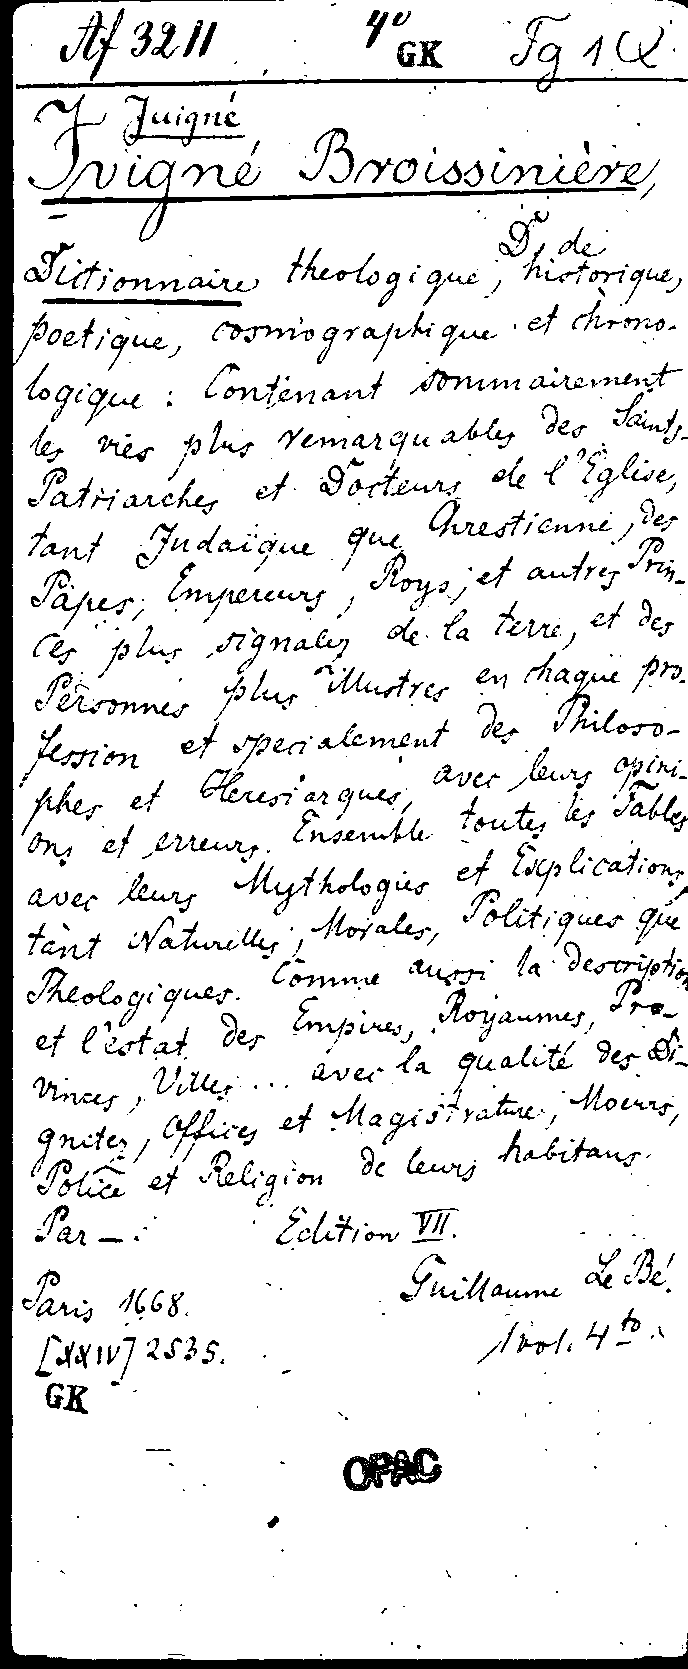 Af 3211 4° GK Fg 1
J Juigné
Jvigné Broissinière,
D. de
Dictionnaire theologique, historique,
poetique, cosmographique et chrono-
logique : Contenant sommairement
les vies plus remarquables des Saints
Patriarches et Docteurs de l'Eglise,
tant Judaïque que Chrestienne, des
Papes, Empereurs, Roys, et autres Prin-
ces plus signalez de la terre, et des
Personnes plus illustres en chaque pro-
fession et specialement des Philoso-
phes et Heresiarques, avec leurs opini-
ons et erreurs. Ensemble toutes les Fables
avec leurs Mythologies et Explications,
tant Naturelles, Morales, Politiques que
Theologiques. Comme aussi la description
et l'estat des Empires, Royaumes, Pro-
vinces, Villes ... avec la qualité des Di-
gnitez, Offices et Magistrature, Moeurs,
Police et Religion de leurs habitans.
Par —. Edition VII.
Guillaume Le Bé.
Paris 1668.
1 vol. 4to.
[XXIV] 2535.
GK
OPAC